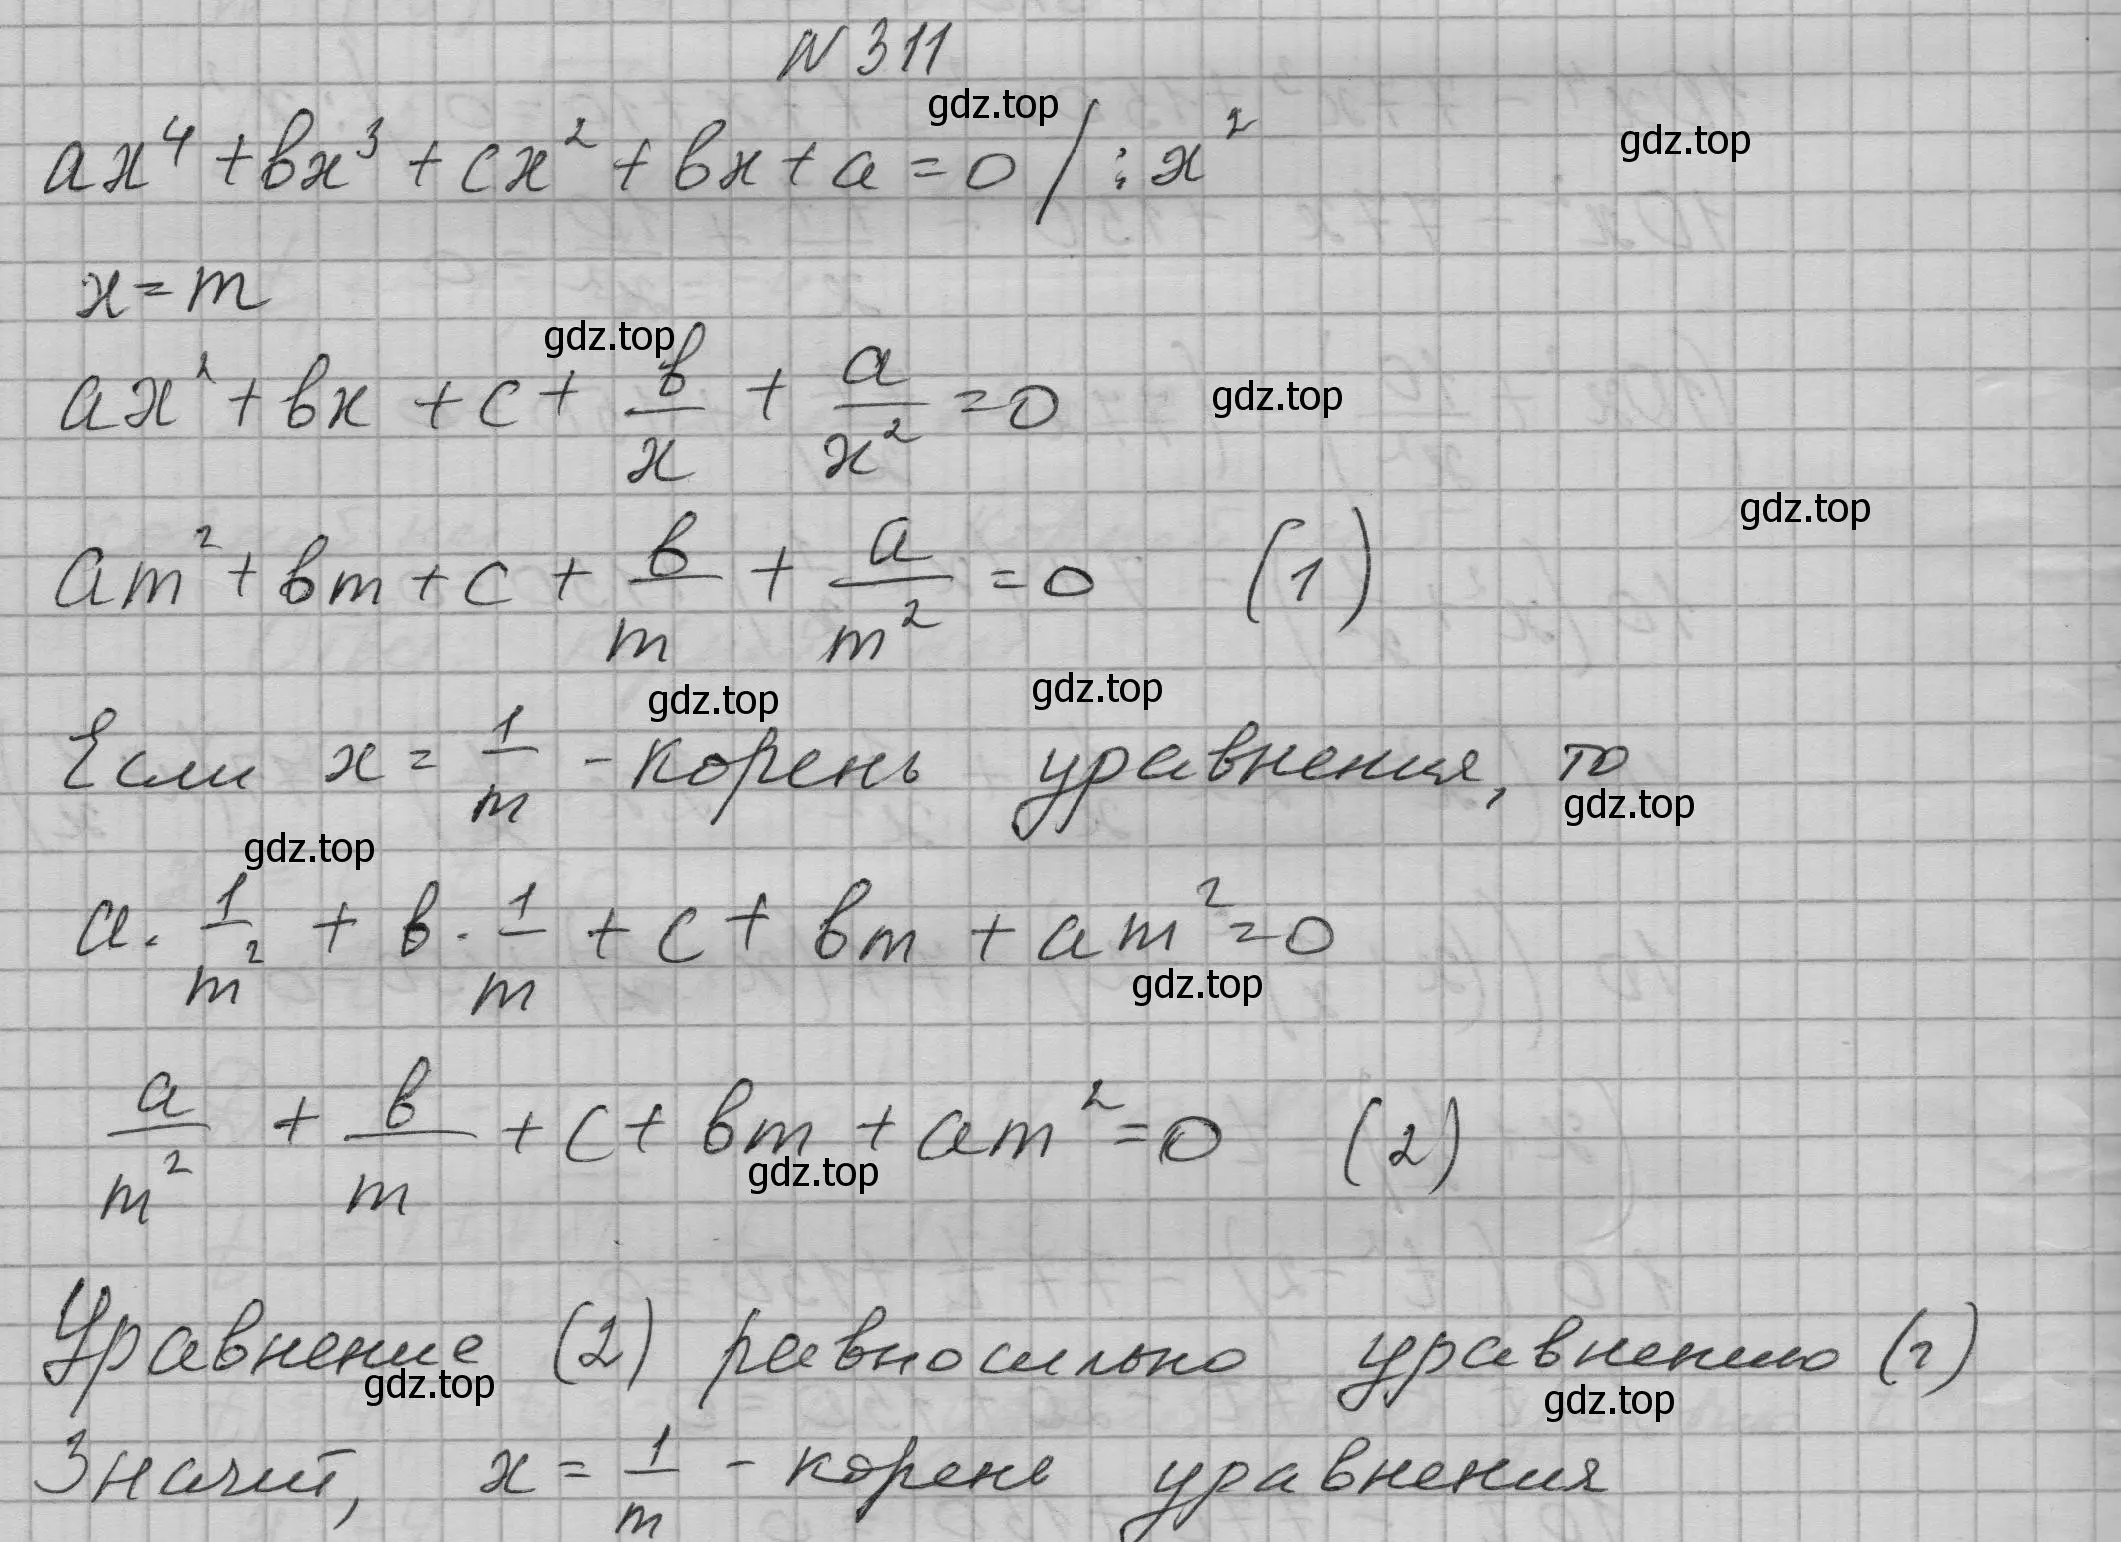 N 311
gdz.top
ax⁴ + вx³ + cx² + вx + a = 0 / : x²
gdz.top
x = m
gdz.top
ax² + вx + c + в/x + a/x² = 0
gdz.top
gdz.top
am² + вm + c + в/m + a/m² = 0 (1)
gdz.top
gdz.top
Если x = 1/m - корень уравнения, то
gdz.top
gdz.top
a · 1/m² + в · 1/m + c + вm + am² = 0
gdz.top
a/m² + в/m + c + вm + am² = 0 (2)
gdz.top
Уравнение (2) равносильно уравнению (1)
gdz.top
gdz.top
Значит, x = 1/m - корень уравнения